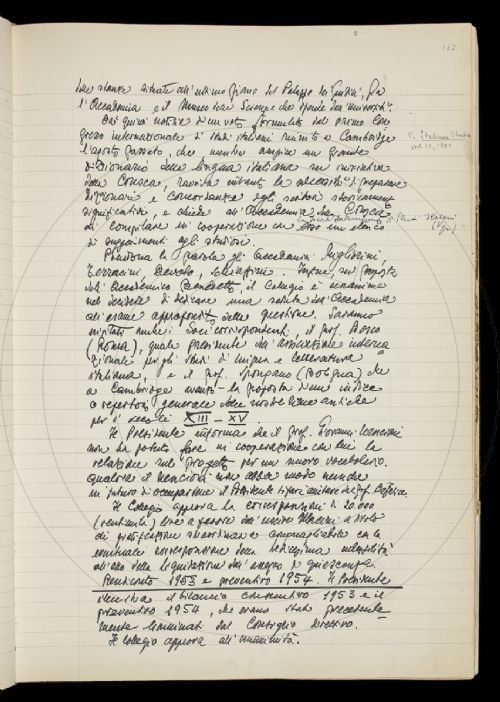 182
due stanze situate all'ultimo piano del Palazzo dei Giudici, fra
l'Accademia e il Museo delle Scienze che dipende dall'università.
Dà quindi notizia d'un voto formulato dal primo Con-
gresso internazionale di studi italiani riunito a Cambridge
l'agosto passato, che mentre auspica un grande
dizionario della lingua italiana su iniziativa
della Crusca, ravvisa intanto la necessità di preparare
dizionari e concordanze degli scrittori storicamente
significativi, e chiede all'Accademia della Crusca
di compilare in cooperazione con esso un elenco
di suggerimenti agli studiosi.
Prendono la parola gli Accademici Migliorini,
Terracini, Devoto, Schiaffini. Infine, su proposta
dell'Accademico Benedetto, il Collegio è unanime
nel decidere di dedicare una seduta dell'Accademia
all'esame approfondito della questione. Saranno
invitati anche i Soci corrispondenti, il prof. Bosco
(Roma), quale presidente dell'Associazione interna-
zionale per gli studi di lingua e letteratura
italiana, e il prof. Spongano (Bologna) che
a Cambridge avanzò la proposta d'un indice
o repertorio generale delle nostre rime antiche
per i secoli XIII - XV
Il Presidente informa che il prof. Giovanni Nencioni
non ha potuto fare in cooperazione con lui la
relazione sul progetto per un nuovo vocabolario.
Qualora il Nencioni non abbia modo nemmeno
in futuro di occuparsene il Presidente si farà aiutare dal prof.
Il Collegio approva la corresponsione di 20.000
(ventimila) lire a favore dell'usciere a titolo
di gratificazione straordinaria e
eventuale corresponsione della tredicesima mensilità
all'atto della liquidazione dell'assegno di quiescenza.
Rendiconto 1953 e preventivo 1954. Il Presidente
illustra il bilancio consuntivo 1953 e il
preventivo 1954, che erano stati precedente-
mente esaminati dal Consiglio Direttivo.
Il Collegio approva all'unanimità.
Italian Studies